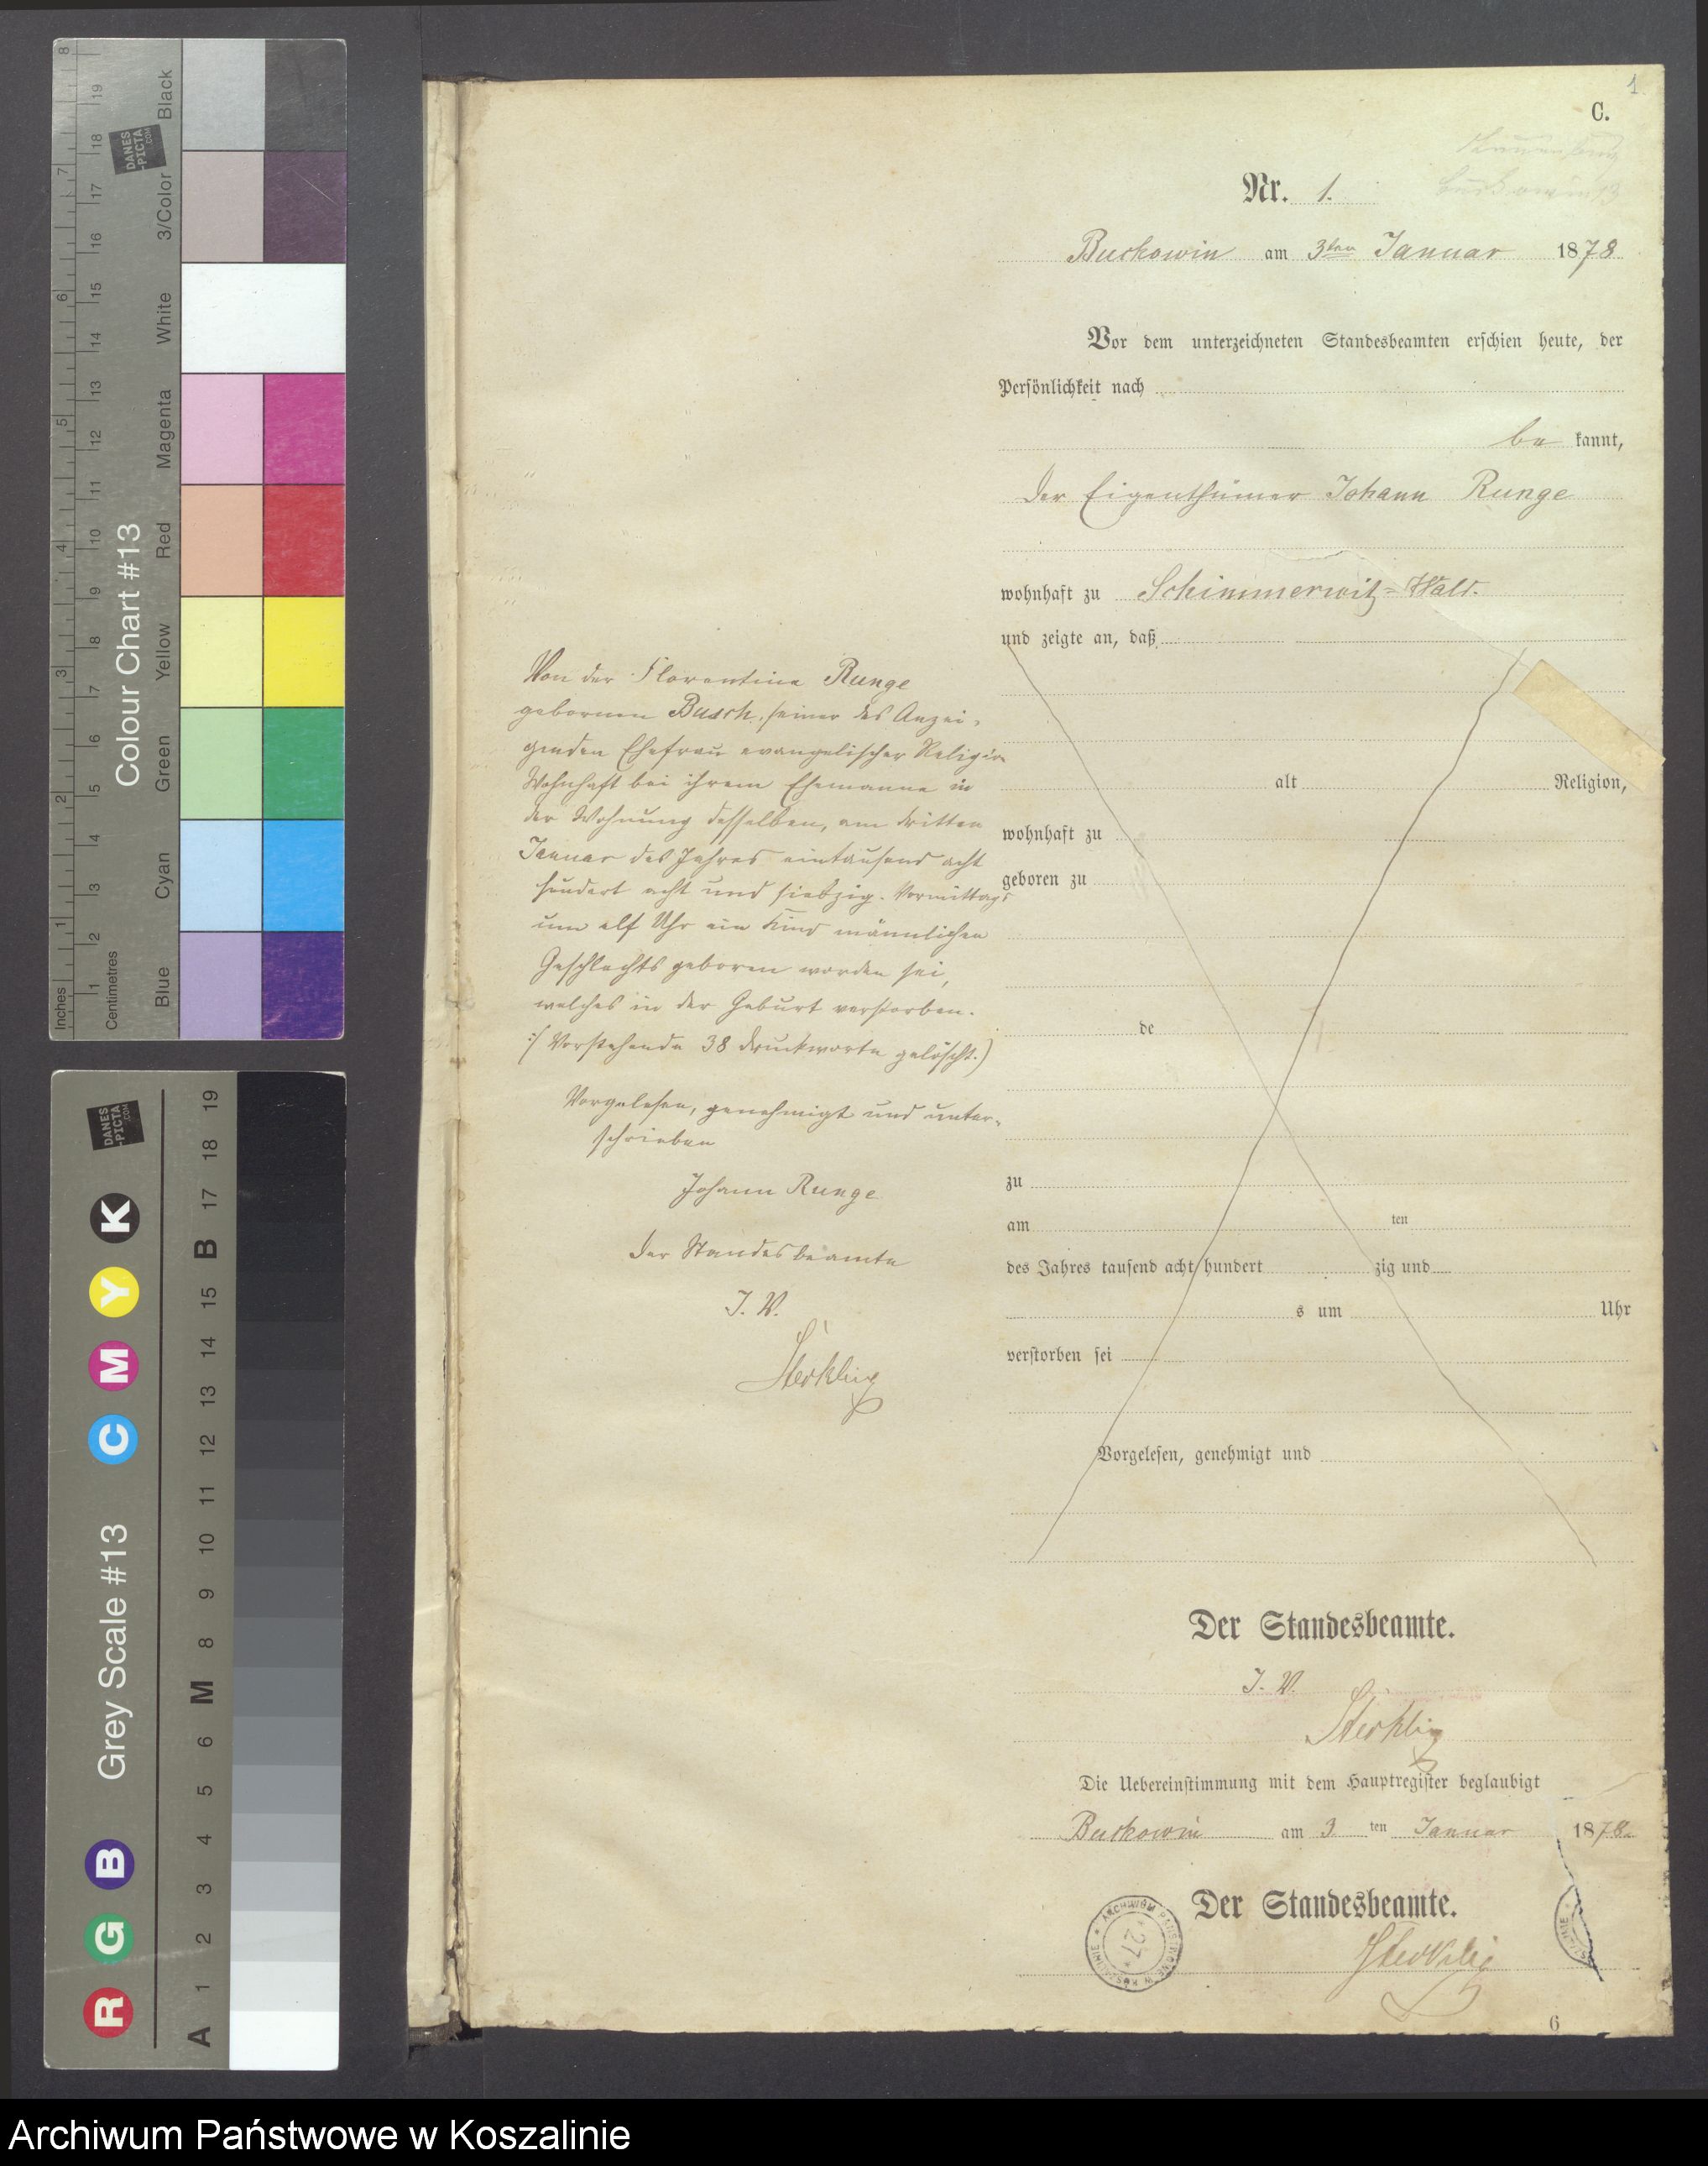 1
C.
Nr. 1.
Buckowin am 3ten Januar 1878
Vor dem unterzeichneten Standesbeamten erschien heute, der
Persönlichkeit nach
be kannt,
der Eigenthümer Johann Runge
wohnhaft zu Schimmerwitz-Wald.
und zeigte an, daß
alt Religion,
wohnhaft zu
geboren zu
de
zu
am ten
des Jahres tausend acht hundert zig und
s um Uhr
verstorben sei
Vorgelesen, genehmigt und
Von der Florentine Runge
gebornen Busch, seiner des Anzei-
genden Ehefrau evangelischer Religion
Wohnhaft bei ihrem Ehemanne in
der Wohnung desselben, am dritten
Januar des Jahres eintausend acht
hundert acht und siebzig. Vormittags
um elf Uhr ein Kind männlichen
Geschlechts geboren worden sei,
welches in der Geburt verstorben.
:/ Vorstehende 38 Druckworte gelöscht.)
Vorgelesen, genehmigt und unter-
schrieben
Johann Runge
Der Standesbeamte
I. V.
Der Standesbeamte.
I. V.
Die Uebereinstimmung mit dem Hauptregister beglaubigt
Buckowin am 3. ten Januar 1878.
Der Standesbeamte.
ARCHIWUM PAŃSTWOWE W KOSZALINIE
* 27 *
6
Inches
1 2 3 4 5 6 7 8
Centimetres
1 2 3 4 5 6 7 8 9 10 11 12 13 14 15 16 17 18 19
Colour Chart #13
Blue Cyan Green Yellow Red Magenta White 3/Color Black
DANES
-PICTA
.COM
Grey Scale #13
R G B C M Y K
A 1 2 3 4 5 6 M 8 9 10 11 12 13 14 15 B 17 18 19
DANES
-PICTA
.COM
Archiwum Państwowe w Koszalinie